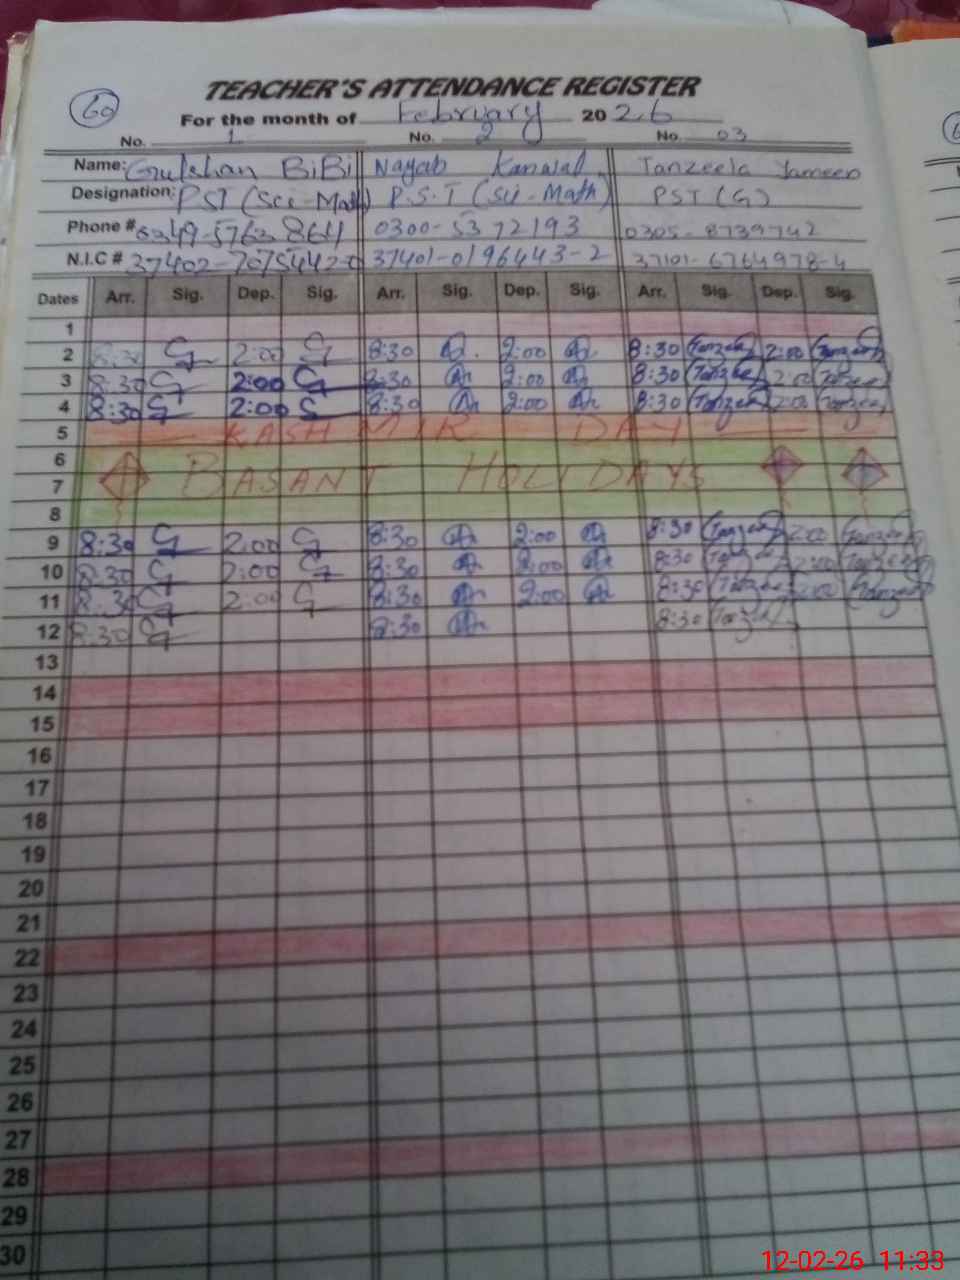 60
TEACHER'S ATTENDANCE REGISTER
For the month of February 2026
No. 1 No. 2 No. 03
Name: Gulshan BiBi Nayab Kanwal Tanzeela Yameen
Designation: PST (Sci-Math) P.S.T (Sci-Math) PST (G)
Phone # 0349-5763864 0300-5372193 0305-8739742
N.I.C # 37402-7075442-0 37401-0196443-2 37101-6764978-4
Dates Arr. Sig. Dep. Sig. Arr. Sig. Dep. Sig. Arr. Sig. Dep. Sig.
1
2 8:30 G 2:00 G 8:30 2:00 8:30 2:00
3 8:30 G 2:00 G 8:30 2:00 8:30 2:00
4 8:30 G 2:00 G 8:30 2:00 8:30 2:00
5 KASHMIR DAY
6
7 BASANT HOLIDAYS
8
9 8:30 G 2:00 G 8:30 2:00 8:30 2:00
10 8:30 G 2:00 G 8:30 2:00 8:30 2:00
11 8:30 G 2:00 G 8:30 2:00 8:30 2:00
12 8:30 G 8:30 8:30
13
14
15
16
17
18
19
20
21
22
23
24
25
26
27
28
29
30
12-02-26 11:33